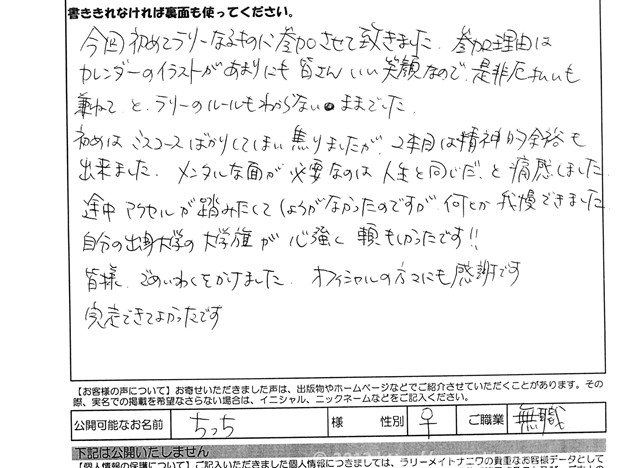 書ききれなければ裏面も使ってください。
今回初めてラリーなるものに参加させて致きました. 参加理由は
カレンダーのイラストがあまりにも皆さんいい笑顔なので、是非厄払いも
兼ねてと、ラリーのルールもわからないままでした.
初めはミスコースばかりしてしまい焦りましたが、2本目は精神的余裕も
出来ました. メンタルな面が必要なのは人生と同じだ、と痛感しました.
途中アクセルが踏みたくてしょうがなかったのですが何とか我慢できました
自分の出身大学の大学旗が心強く頼もしかったです!!
皆様ごめいわくをかけました. オフィシャルの方々にも感謝です
完走できてよかったです
【お客様の声について】お寄せいただきました声は、出版物やホームページなどでご紹介させていただくことがあります。その
際、実名での掲載を希望なさらない場合は、イニシャル、ニックネームなどをご記入ください。
公開可能なお名前 ちっち 様 性別 ♀ ご職業 無職
下記は公開いたしません
【個人情報の保護について】ご記入いただきました個人情報につきましては、ラリーメイトナニワの貴重なお客様データとして